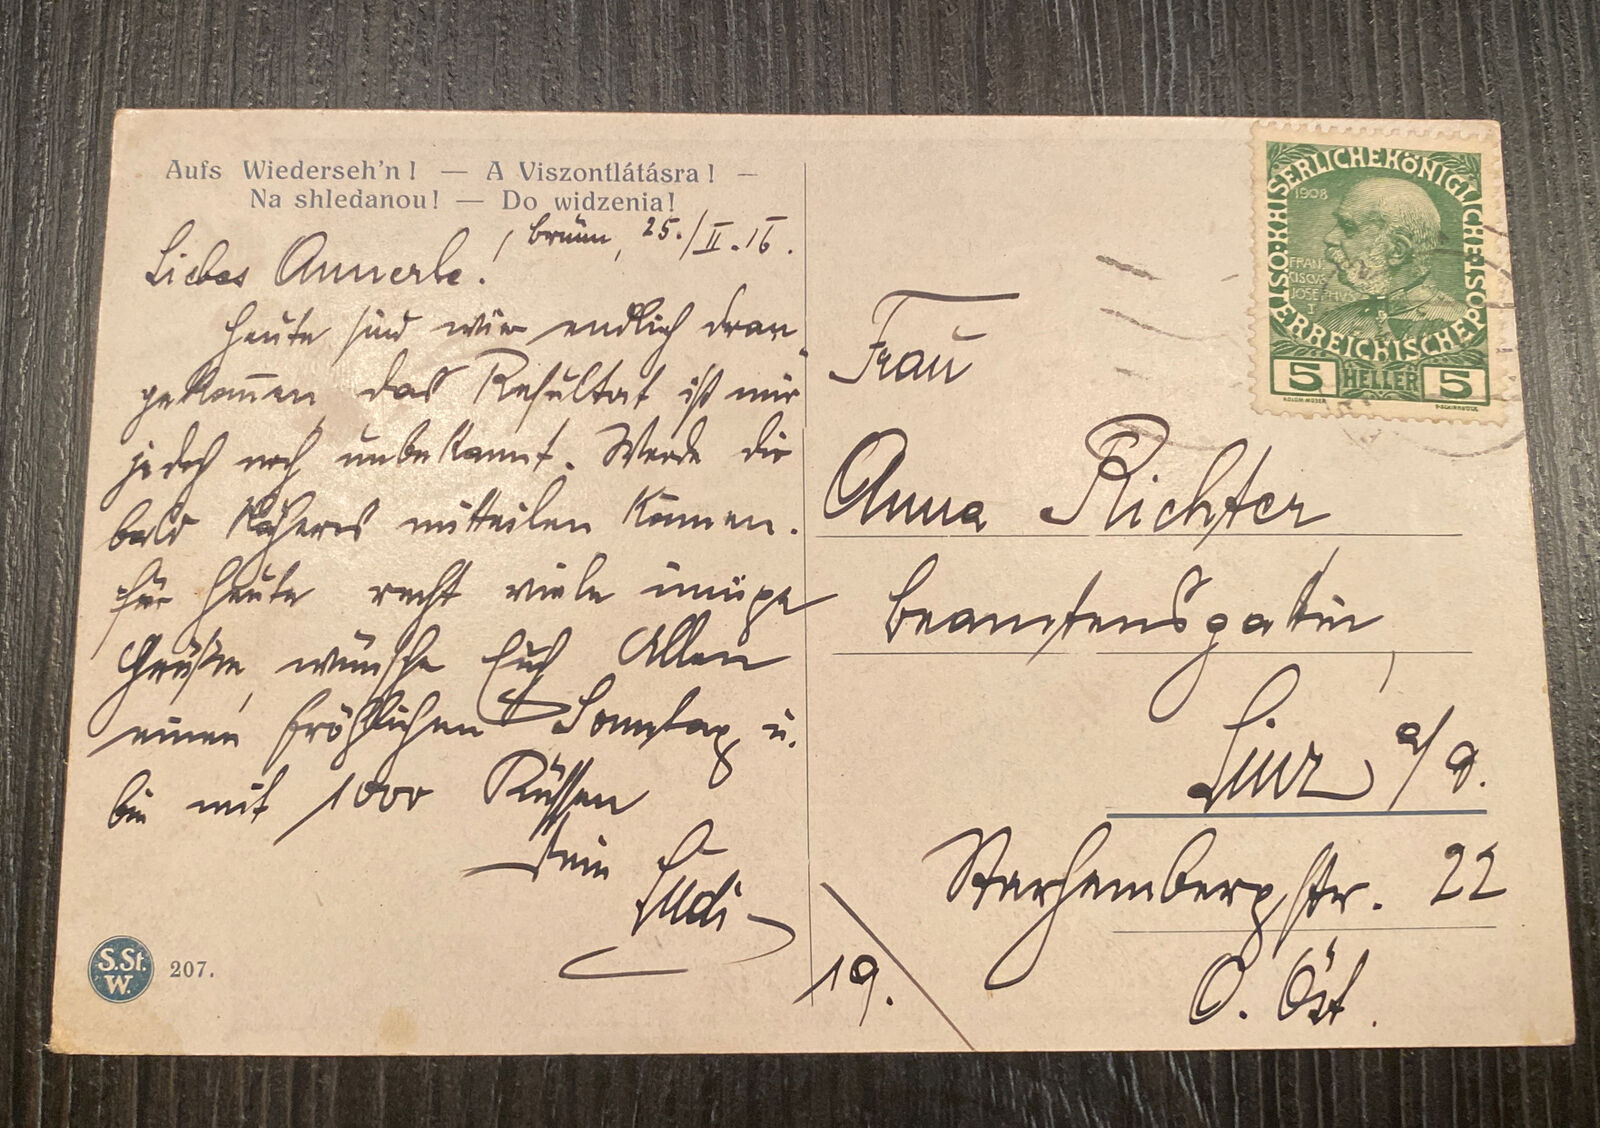 Aufs Wiederseh'n! — A Viszontlátásra! —
Na shledanou! — Do widzenia!
Brünn, 25./II. 16.
Liebes Annerle!
Heute sind wir endlich dran
gekommen, das Resultat ist mir
jedoch noch unbekannt. Werde dir
bald Näheres mitteilen können.
Für heute recht viele innige
Grüße, wünsche Euch Allen
einen fröhlichen Sonntag u.
bin mit 1000 Küssen
dein
S.St.
W.
207.
19.
KAISERLICHE KÖNIGLICHE
ÖSTERREICHISCHE POST
1908
FRAN
CISCVS
JOSEPHVS
I
5 HELLER 5
KOLOM. MOSER
F. SCHIRNBÖCK
Frau
Anna Richter
Beamtensgattin,
Linz a/d.
Starhembergstr. 22
O. Öst.